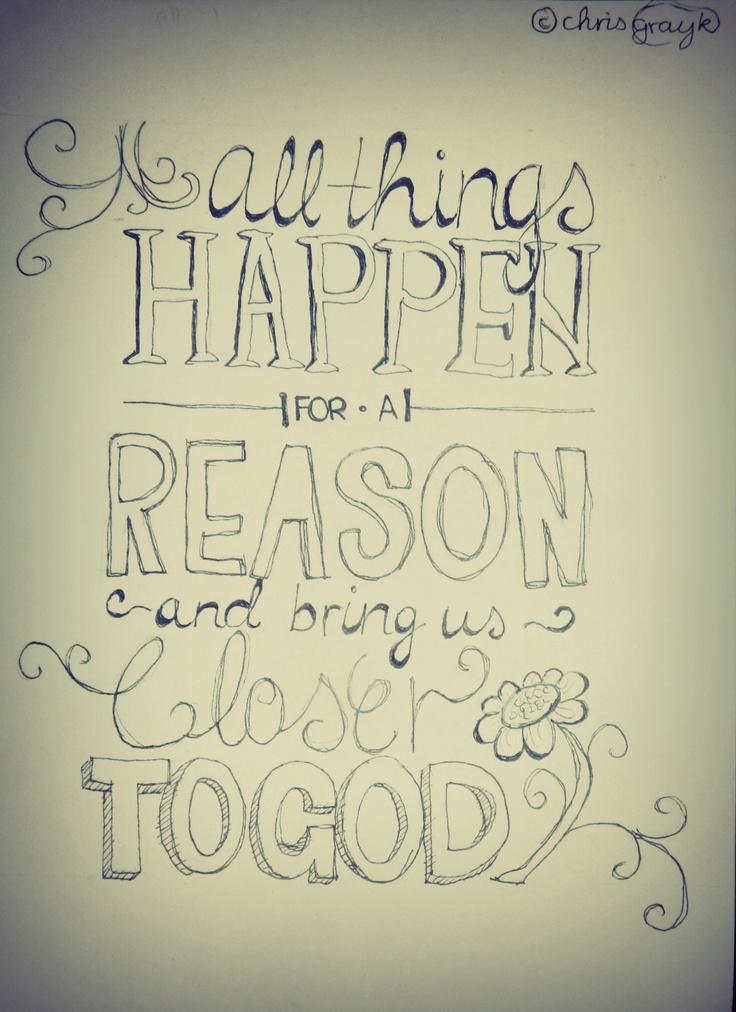 © chris grayk
all things
HAPPEN
FOR • A
REASON
and bring us
closer
TO GOD